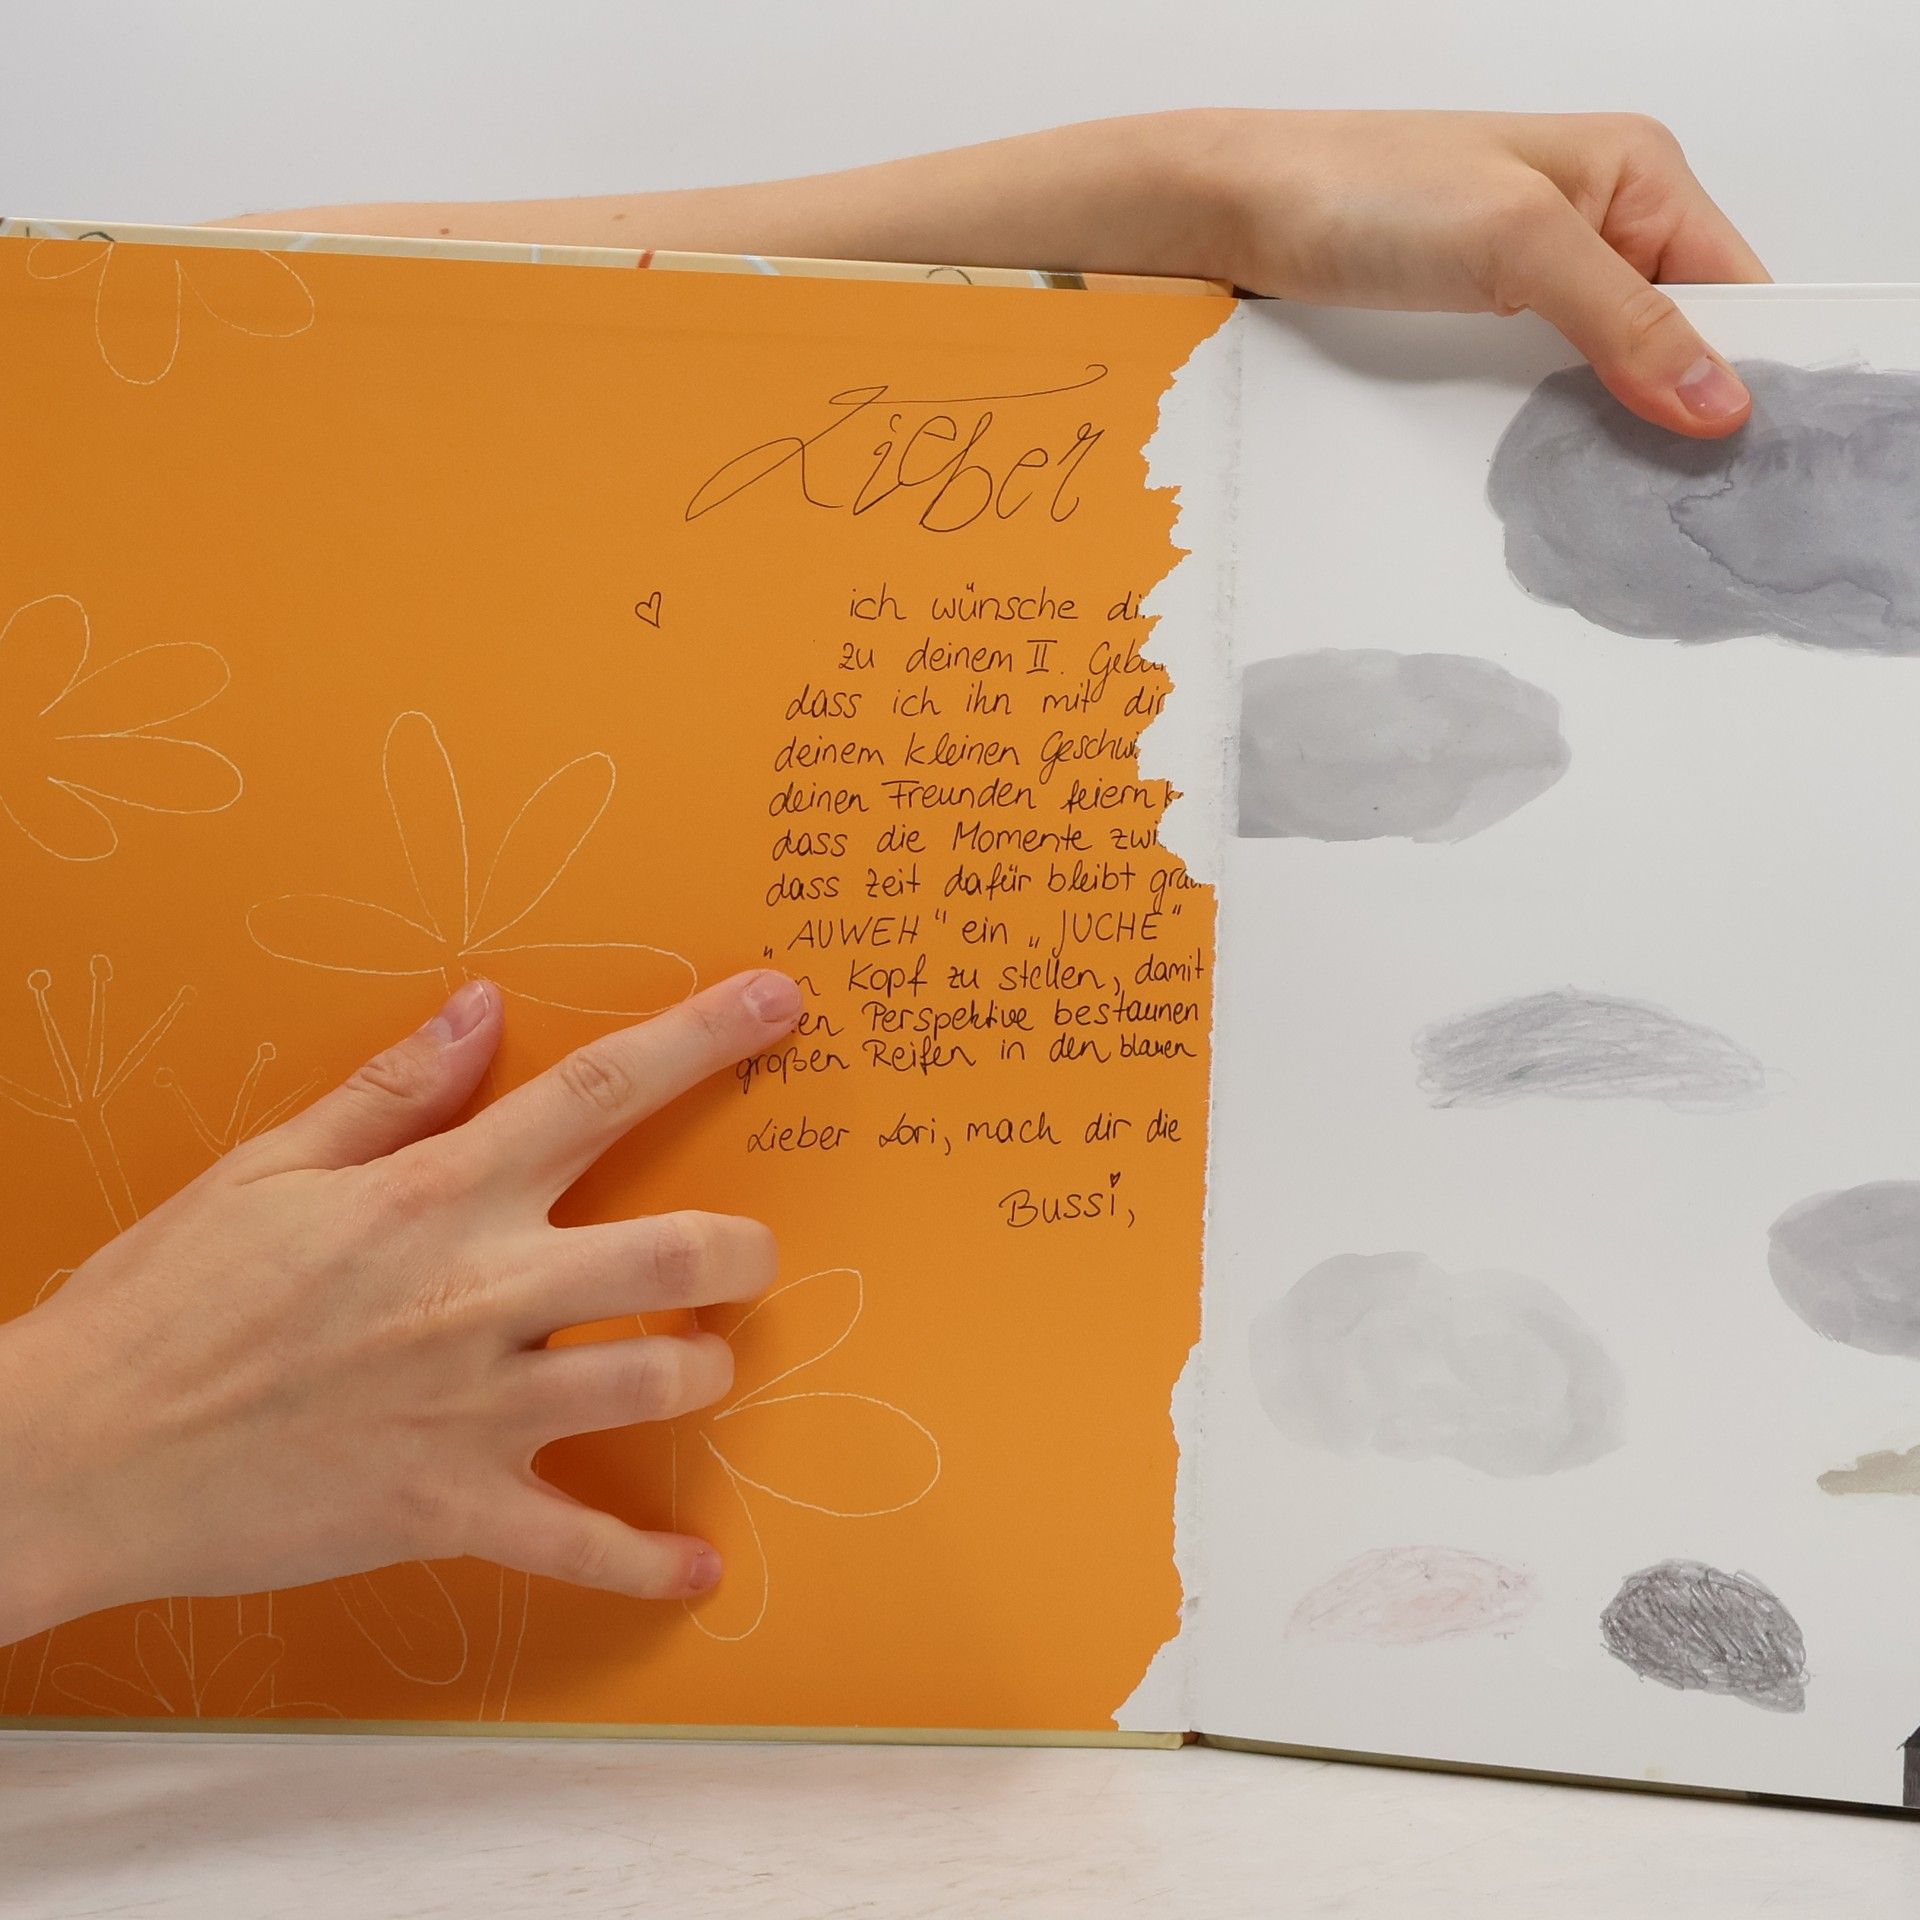 Lieber
ich wünsche
zu deinem II.
dass ich ihn mit dir
deinem kleinen
deinen Freunden feiern
dass die Momente
dass Zeit dafür bleibt
„AUWEH“ ein „JUCHE“
Kopf zu stellen, damit
Perspektive bestaunen
großen Reifen in den blauen
Lieber Lori, mach dir die
Bussi,